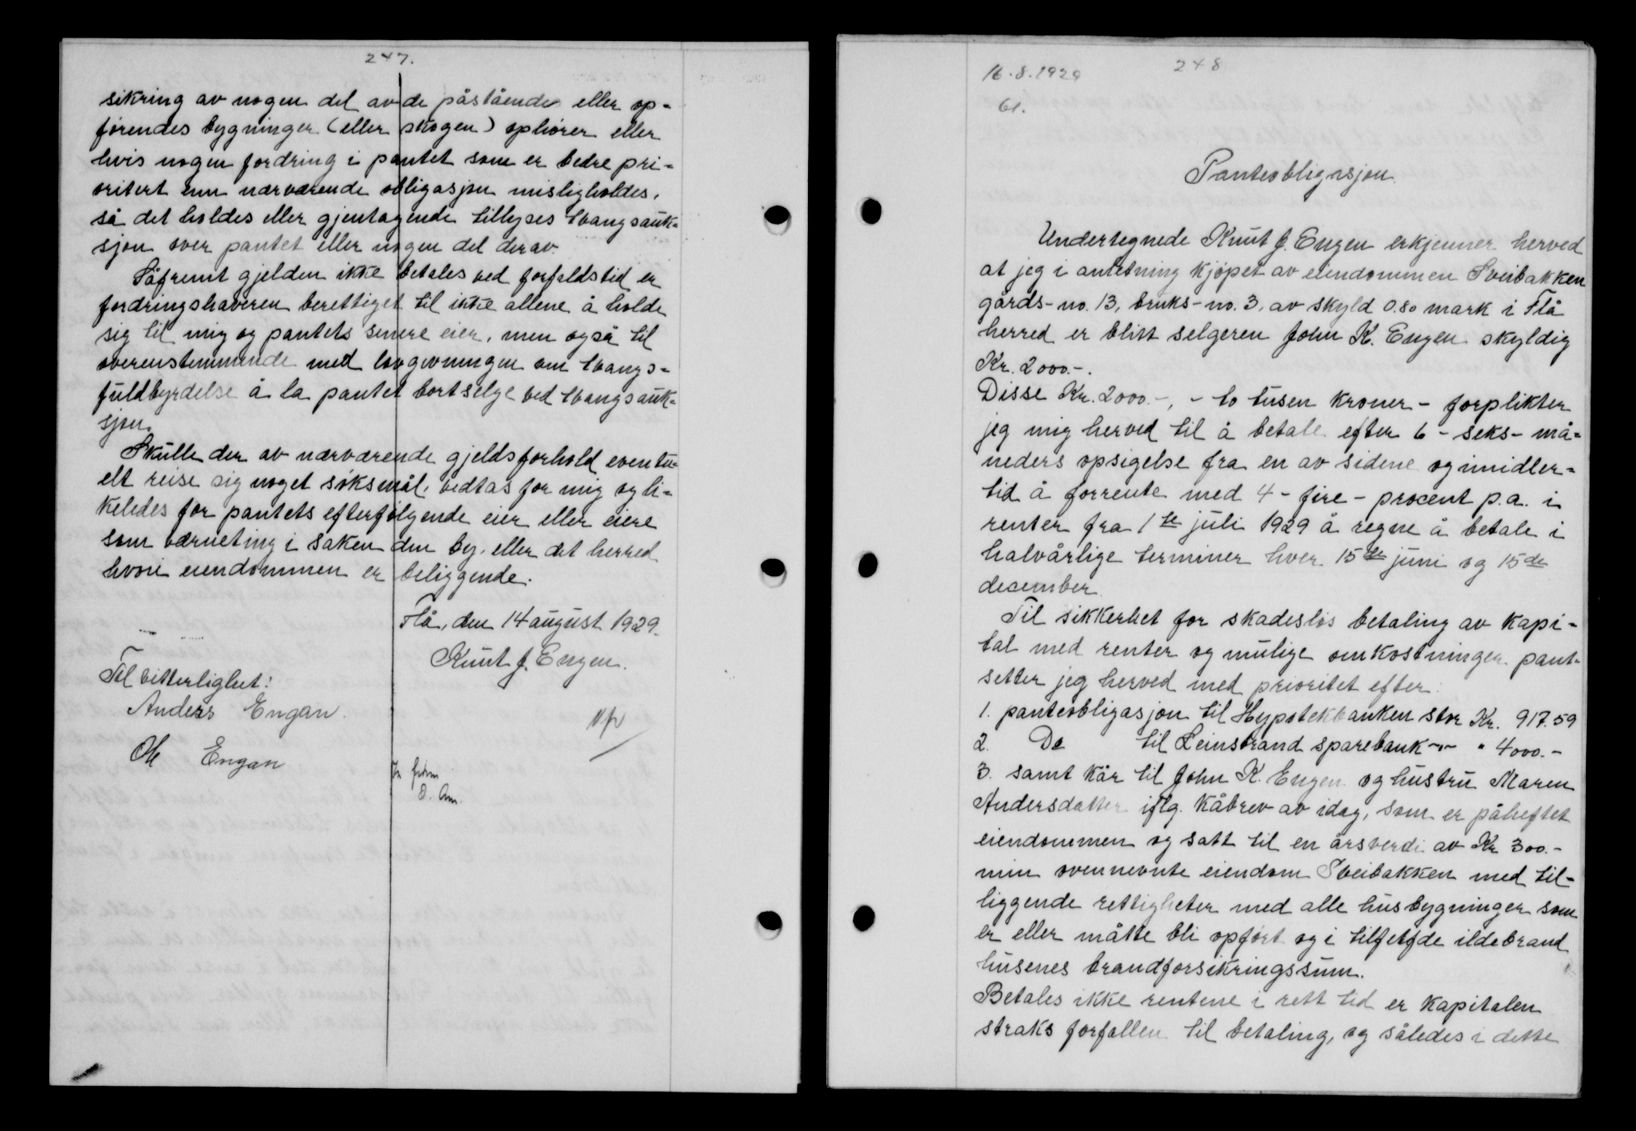 247.
sikring av nogen del av de påstående eller op-
førendes bygninger (eller skogen) ophører eller
hvis nogen fordring i pantet som er bedre pri-
oritert enn nærværende obligasjon misligholdes,
så det holdes eller gjentagende tillyses tvangsauk-
sjon over pantet eller nogen del derav.
Såfremt gjelden ikke betales ved forfaldstid er
fordringshaveren berettiget til ikke allene å holde
sig til mig og pantets senere eier, men også til
overenstemmende med lovgivningen om tvangs-
fuldbyrdelse å la pantet bortselge ved tvangsauk-
sjon.
Skulle der av nærværende gjeldsforhold eventu-
elt reise sig noget søksmål, vedtas for mig og li-
keledes for pantets efterfølgende eier eller eiere
som værneting i saken den by, eller det herred
hvori eiendommen er beliggende.
Flå, den 14 august 1929.
Knut J. Engen.
Til vitterlighet:
Anders Engan.
Ole Engan
248
16.8.1929
61.
Panteobligasjon
Undertegnede Knut J. Engen erkjenner herved
at jeg i anledning kjøpet av eiendommen Sveibakken
gårds-no. 13, bruks-no. 3, av skyld 0.80 mark i Flå
herred er blitt selgeren John K. Engen skyldig
Kr. 2000.-.
Disse Kr. 2000.-, - to tusen kroner - forplikter
jeg mig herved til å betale efter 6 - seks - må-
neders opsigelse fra en av sidene og imidler-
tid å forrente med 4 - fire - procent p.a. i
renter fra 1ste juli 1929 å regne å betale i
halvårlige terminer hver 15de juni og 15de
desember.
Til sikkerhet for skadesløs betaling av kapi-
tal med renter og mulige omkostninger pant-
setter jeg herved med prioritet efter:
1. panteobligasjon til Hypotekbanken stor Kr. 917.59
2. Do til Leinstrand sparebank -"- " 4000.-
3. samt kår til John K. Engen og hustru Maren
Andersdatter iflg. kåbrev av idag, som er påheftet
eiendommen og satt til en årsverdi av Kr 300.-
min ovennevnte eiendom Sveibakken med til-
liggende rettigheter med alle husbygninger som
er eller måtte bli opført og i tilfelde ildebrand
husenes brandforsikringssum.
Betales ikke rentene i rett tid er kapitalen
straks forfallen til betaling, og således i dette